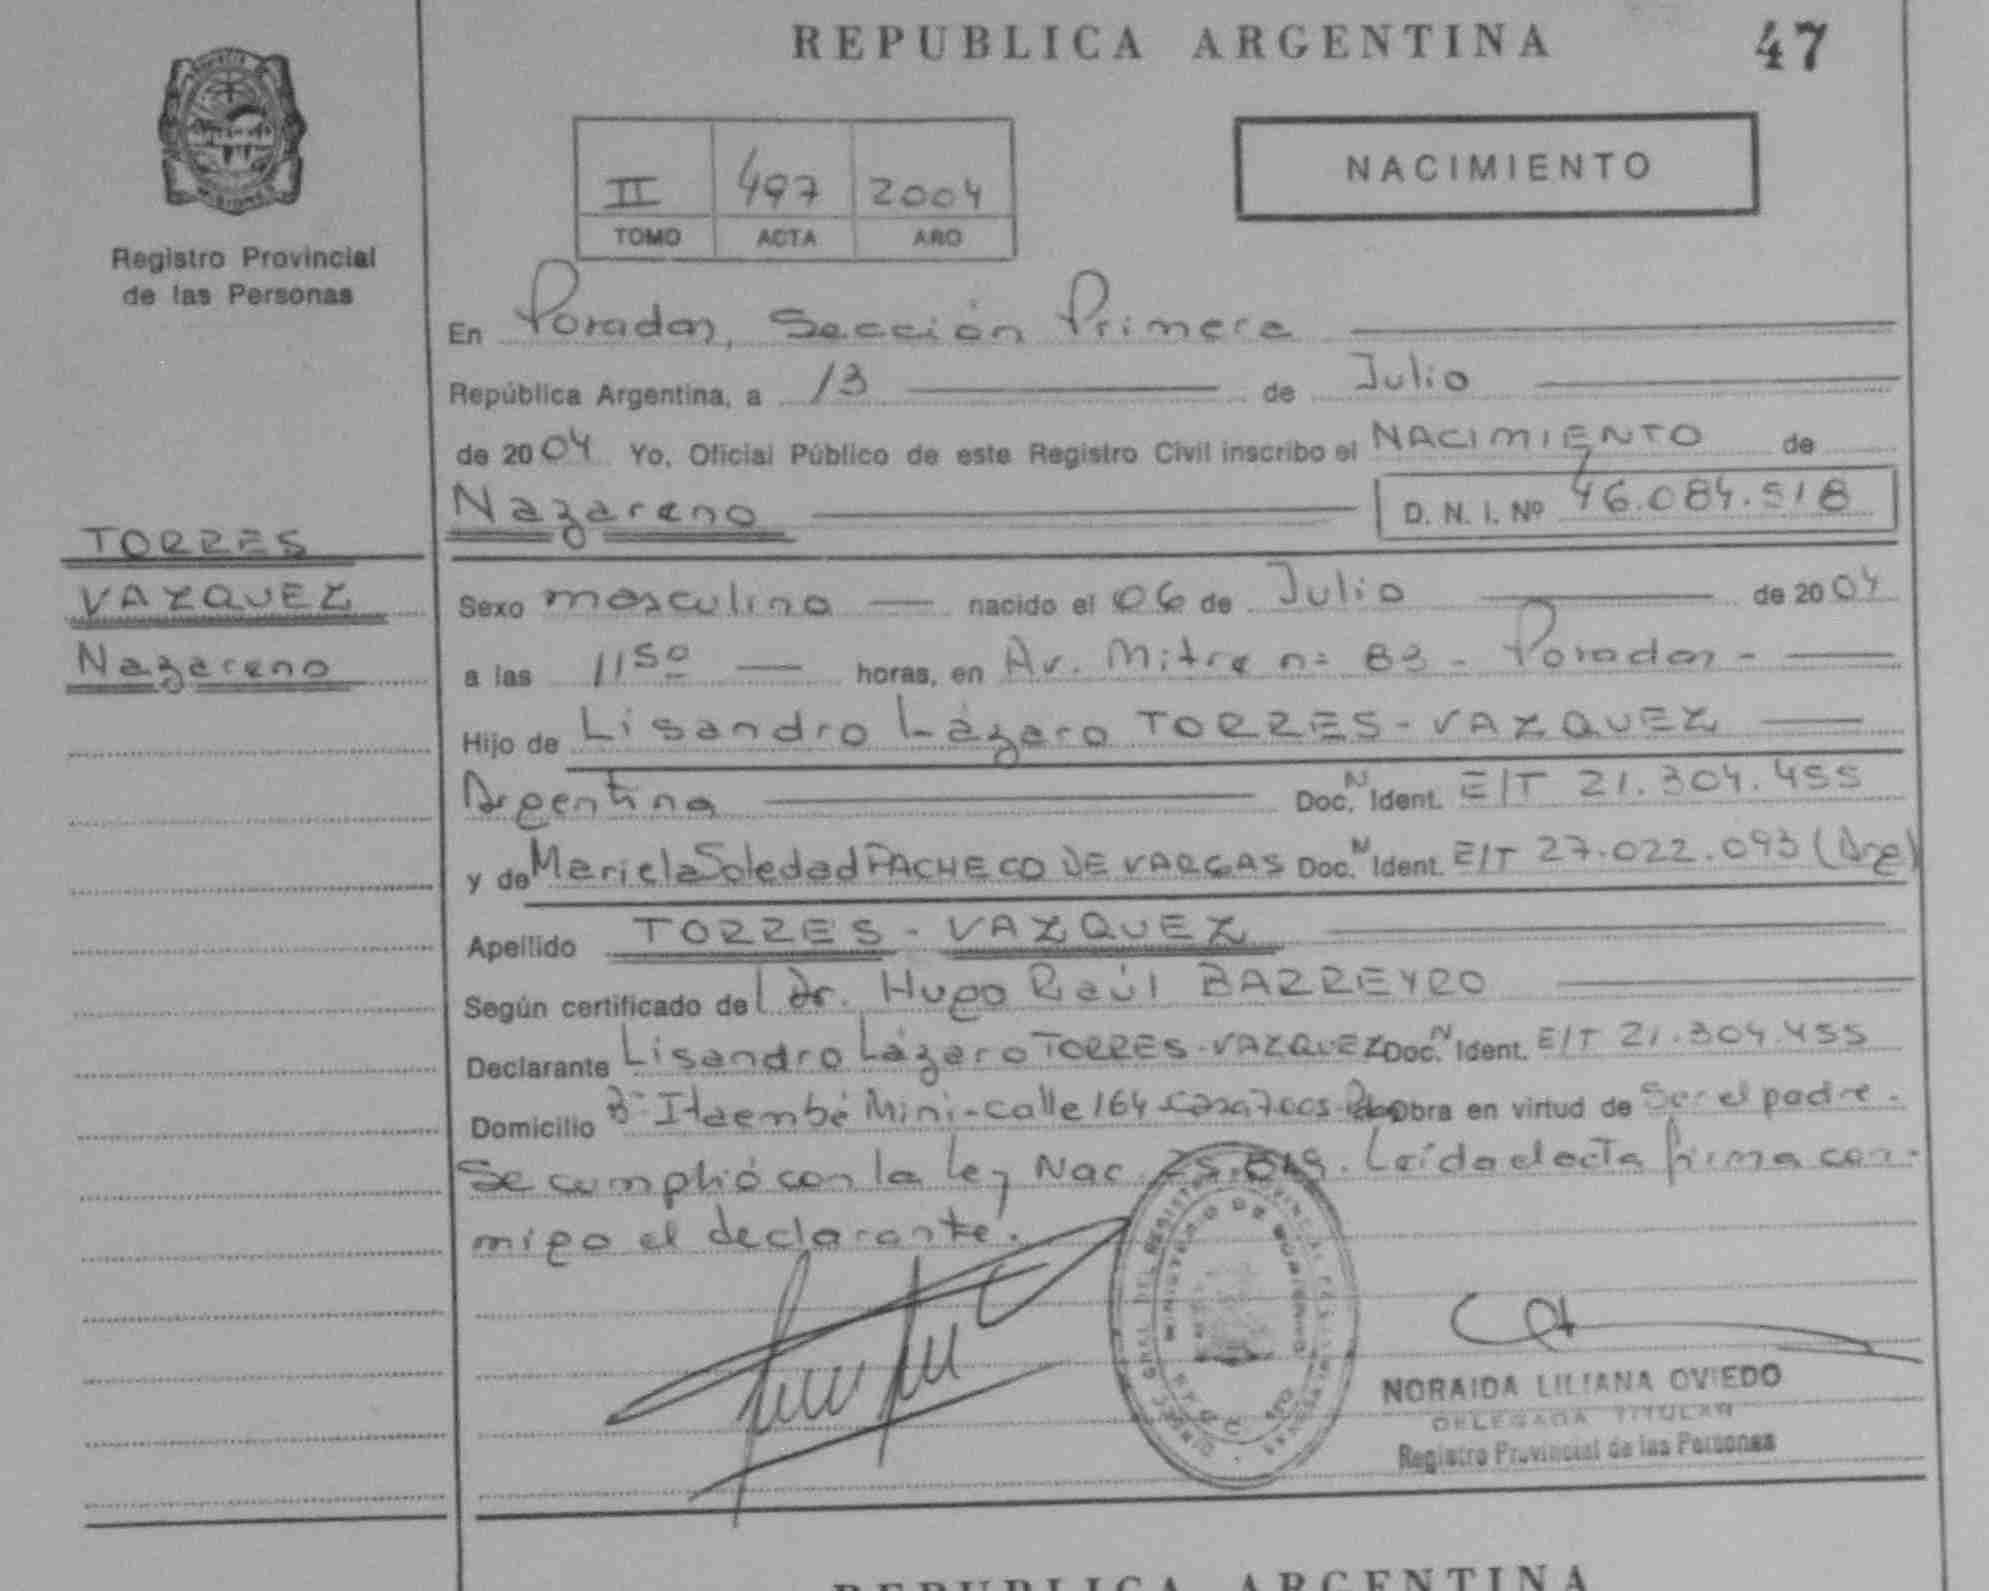 REPUBLICA ARGENTINA
47
NACIMIENTO
II 497 2004
TOMO ACTA AÑO
Registro Provincial
de las Personas
En Posadas, Sección Primera
República Argentina, a 13 de Julio
de 2004 Yo, Oficial Público de este Registro Civil inscribo el NACIMIENTO de
Nazareno D. N. I. Nº 46.084.518
TORRES
VAZQUEZ
Nazareno
Sexo masculino nacido el 06 de Julio de 2004
a las 11 50 horas, en Av. Mitre nº 83 - Posadas -
Hijo de Lisandro Lázaro TORRES - VAZQUEZ
Argentina Doc. N Ident. E/T 21.304.455
y de Mariela Soledad PACHECO DE VARGAS Doc. N Ident. E/T 27.022.093 (Arg)
Apellido TORRES - VAZQUEZ
Según certificado del Dr. Hugo Raúl BARREYRO
Declarante Lisandro Lázaro TORRES - VAZQUEZ Doc. N Ident. E/T 21.304.455
Domicilio Bº Itaembé Mini - calle 164 - casa 7005 Obra en virtud de Ser el padre.
Se cumplió con la ley Nac. Leída el acta firma con-
migo el declarante.
MINISTERIO DE GOBIERNO
NORAIDA LILIANA OVIEDO
DELEGADA TITULAR
Registro Provincial de las Personas
REPUBLICA ARGENTINA